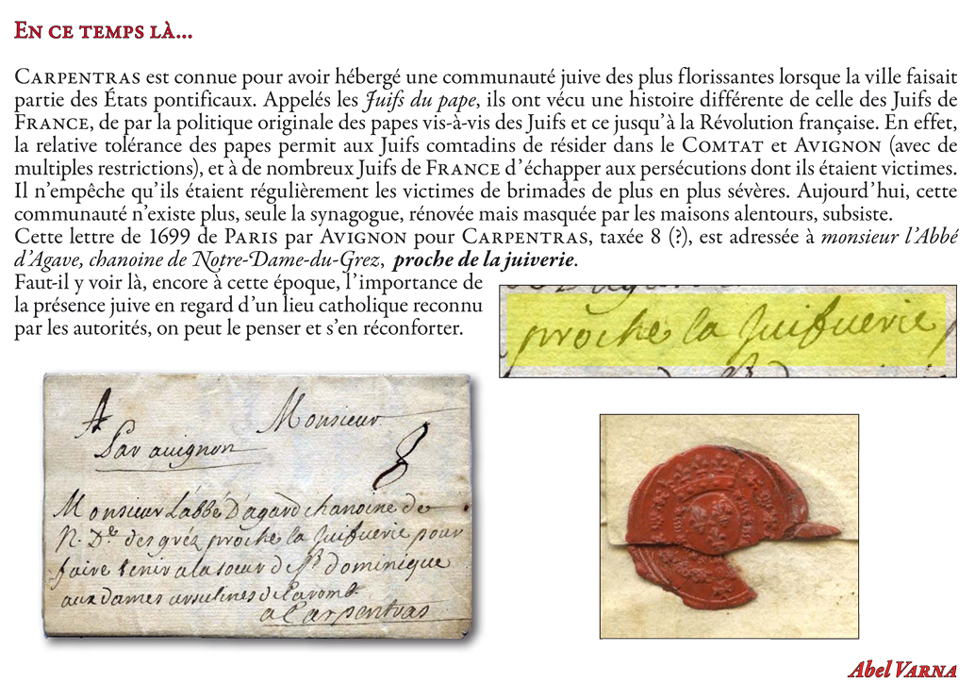 En ce temps là...
Carpentras est connue pour avoir hébergé une communauté juive des plus florissantes lorsque la ville faisait
partie des États pontificaux. Appelés les Juifs du pape, ils ont vécu une histoire différente de celle des Juifs de
France, de par la politique originale des papes vis-à-vis des Juifs et ce jusqu'à la Révolution française. En effet,
la relative tolérance des papes permit aux Juifs comtadins de résider dans le Comtat et Avignon (avec de
multiples restrictions), et à de nombreux Juifs de France d'échapper aux persécutions dont ils étaient victimes.
Il n'empêche qu'ils étaient régulièrement les victimes de brimades de plus en plus sévères. Aujourd'hui, cette
communauté n'existe plus, seule la synagogue, rénovée mais masquée par les maisons alentours, subsiste.
Cette lettre de 1699 de Paris par Avignon pour Carpentras, taxée 8 (?), est adressée à monsieur l'Abbé
d'Agave, chanoine de Notre-Dame-du-Grez, proche de la juiverie.
Faut-il y voir là, encore à cette époque, l'importance de
la présence juive en regard d'un lieu catholique reconnu
par les autorités, on peut le penser et s'en réconforter.
proche la Juifuerie
A Monsieur
Par avignon
8
Monsieur L'abbé D'agard chanoine de
N. De des gréz proche la Juifuerie pour
faire tenir a la soeur de St dominique
aux dames ursulines de Caromb
a Carpentras
Abel Varna